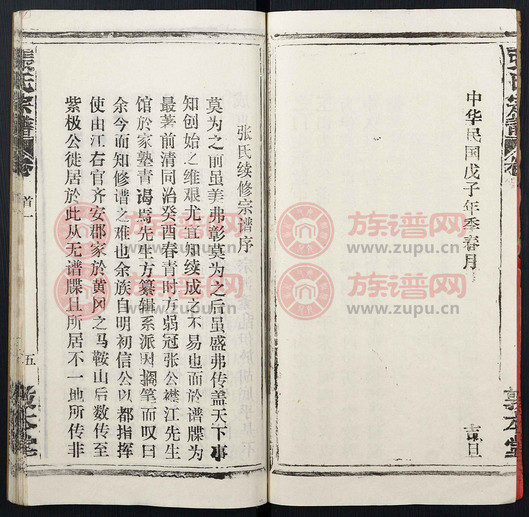 中华民国戊子年季春月
吉旦
张氏续修宗谱序
莫为之前虽美弗彰莫为之后虽盛弗传盖天下事
知创始之维艰尤宜知续成之不易也而于谱牒为
最著前清同治癸酉春青时方弱冠张公襟江先生
馆於家塾青谒焉先生方纂辑系派因搁笔而叹曰
余今而知修谱之难也余族自明初信公以都指挥
使由江右官齐安郡家於黄冈之马鞍山后数传至
紫极公徙居於此从无谱牒且所居不一地所传非
張氏宗譜
卷首一
五
敦本堂
族谱网
www.zupu.cn
族谱网
www.zupu.cn
族谱网
www.zupu.cn
族谱网
www.zupu.cn